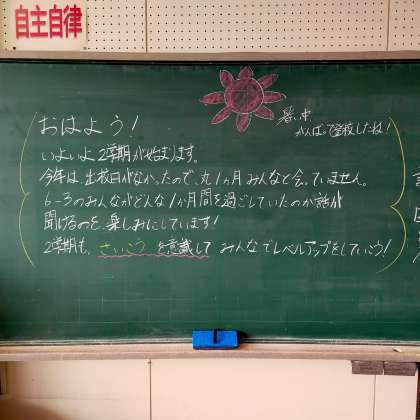 自主自律
暑い中、
がんばって登校したね！
おはよう！
いよいよ2学期が始まります。
今年は、出校日がなかったので、丸1ヵ月みんなと会っていません。
6-3のみんながどんな1か月間を過ごしていたのか話が
聞けるのを、楽しみにしています！
2学期も、さいこう を意識して みんなでレベルアップをしていこう！